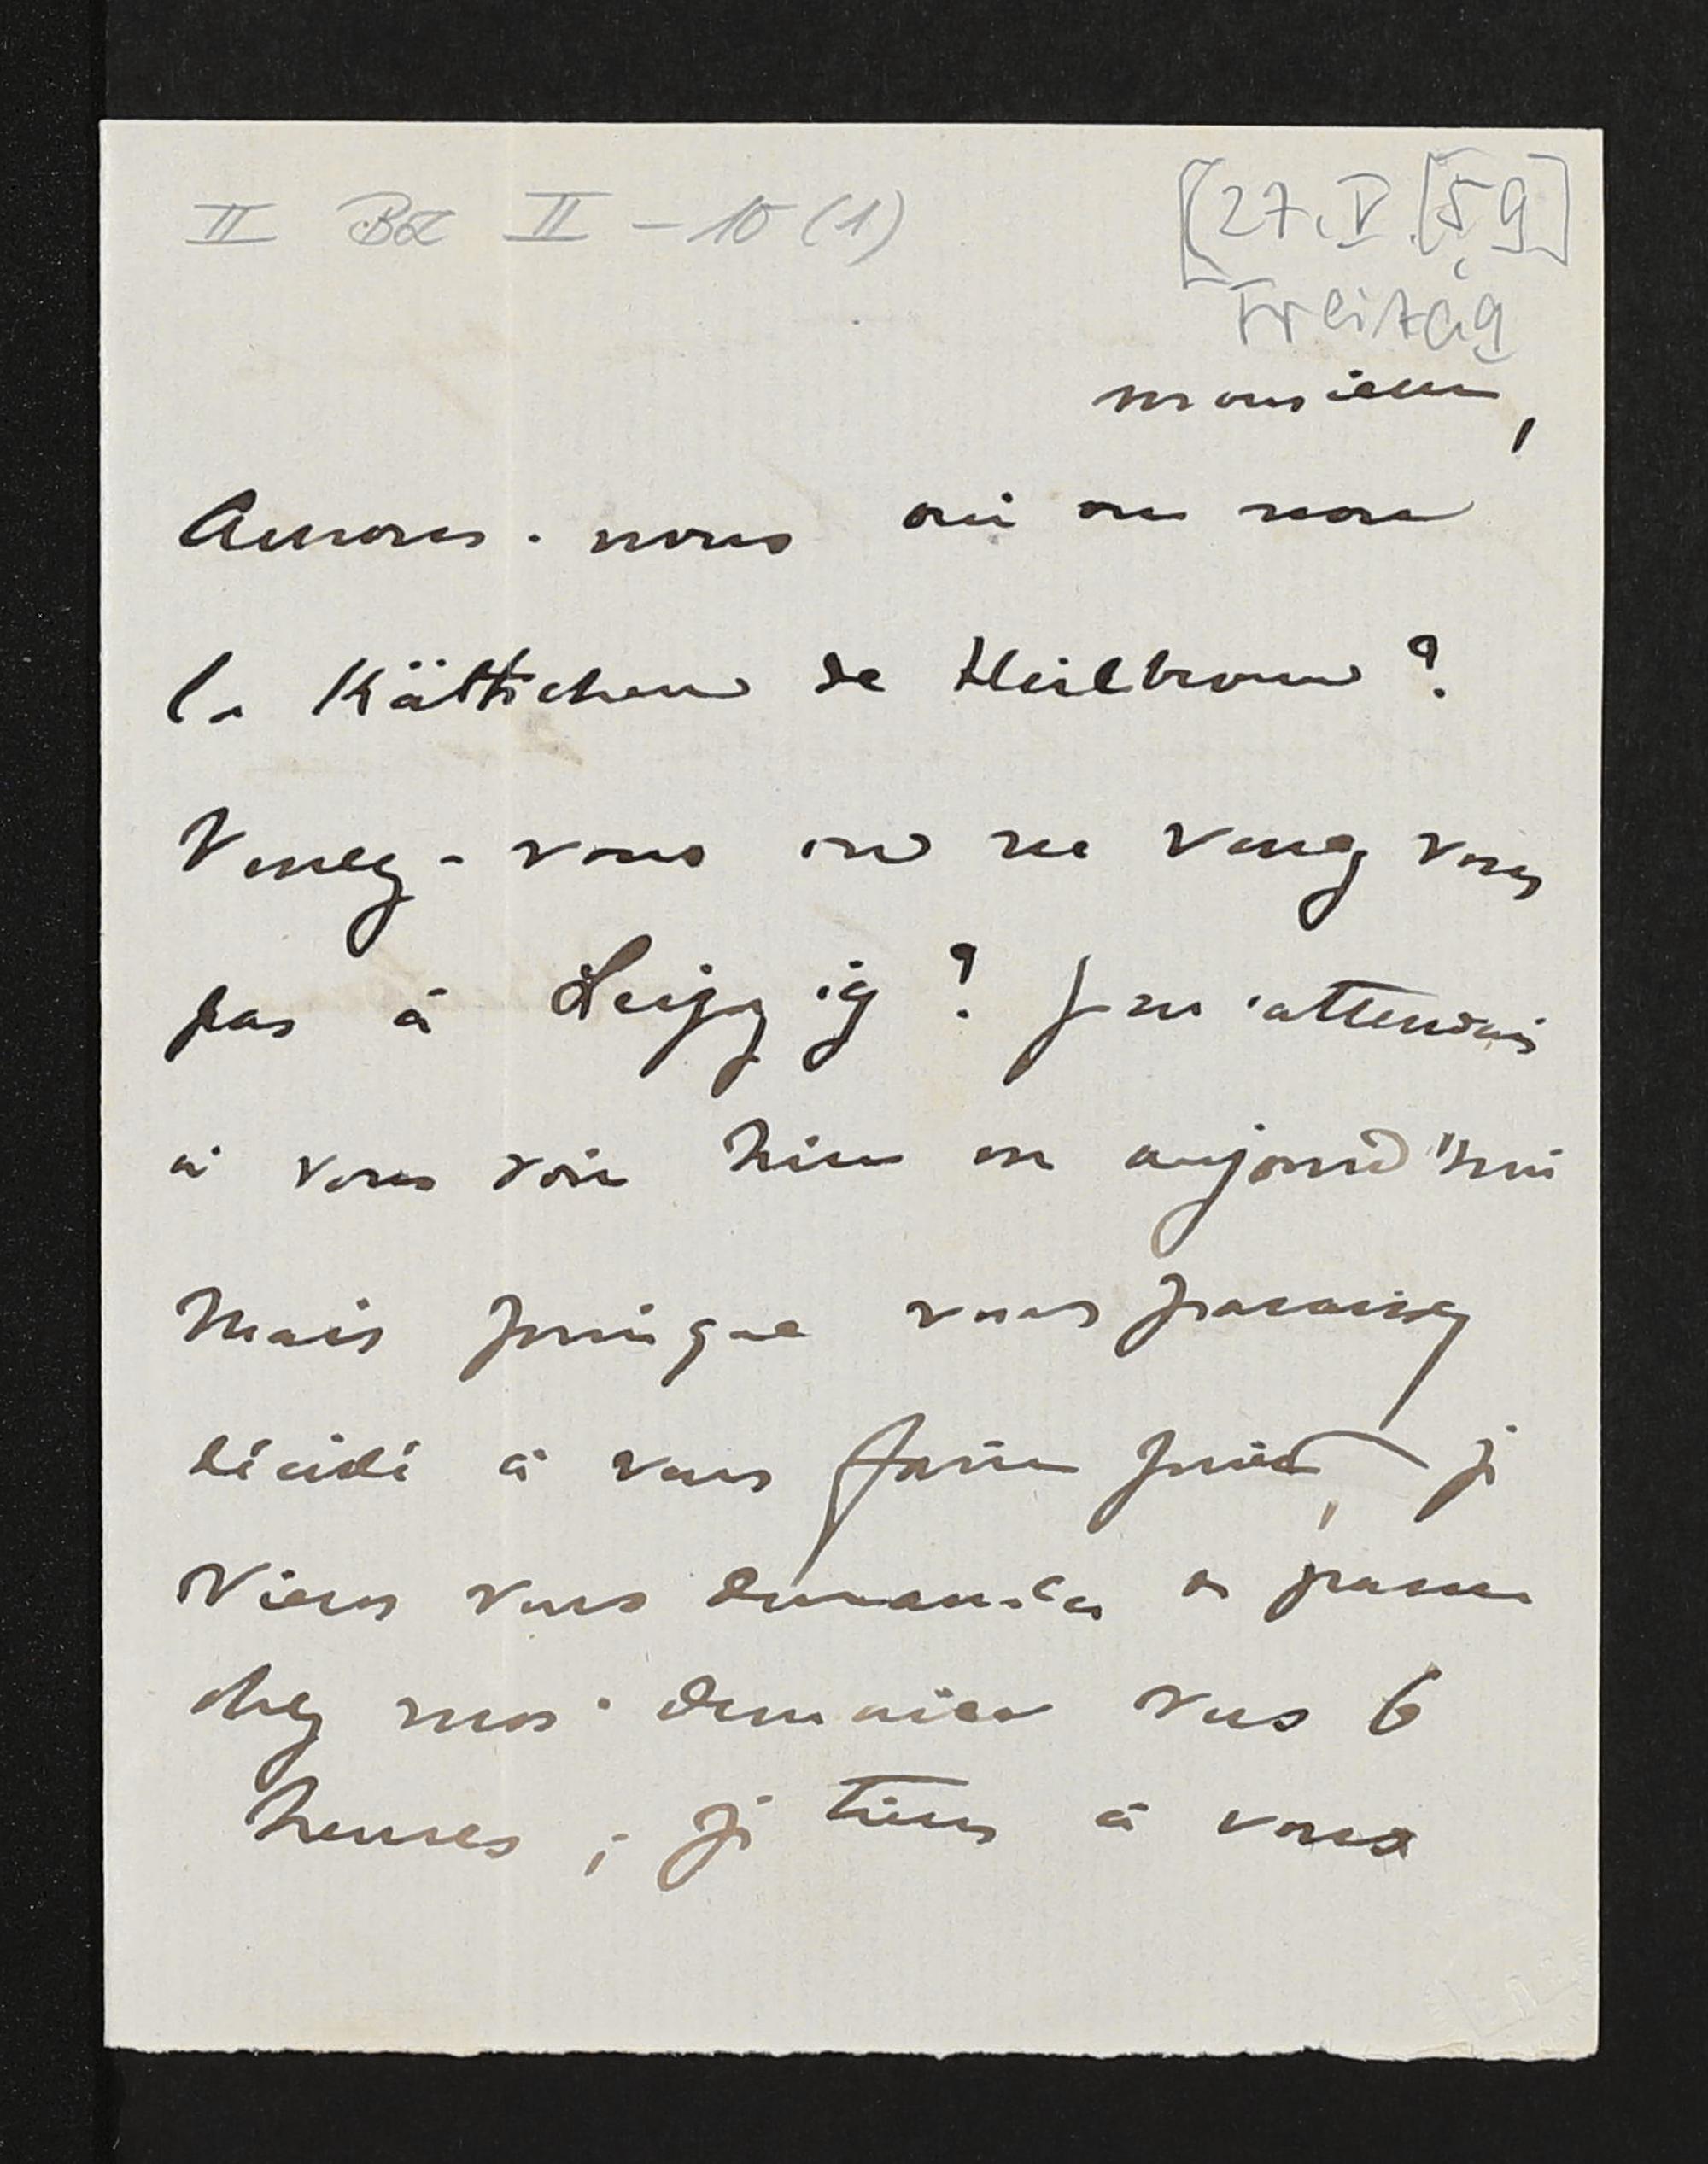 II BZ II - 10 (1)
[27. V. [59]
Freitag
monsieur,
Aurons-nous oui ou non
la Kättchen de Heilbronn ?
Venez-vous ou ne venez vous
pas à Leipzig ? Je m'attendais
à vous voir hier ou aujourd'hui
Mais puisque vous paraissez
décidé à vous faire prier, je
viens vous demander de passer
chez moi demain vers 6
heures ; je tiens à vous